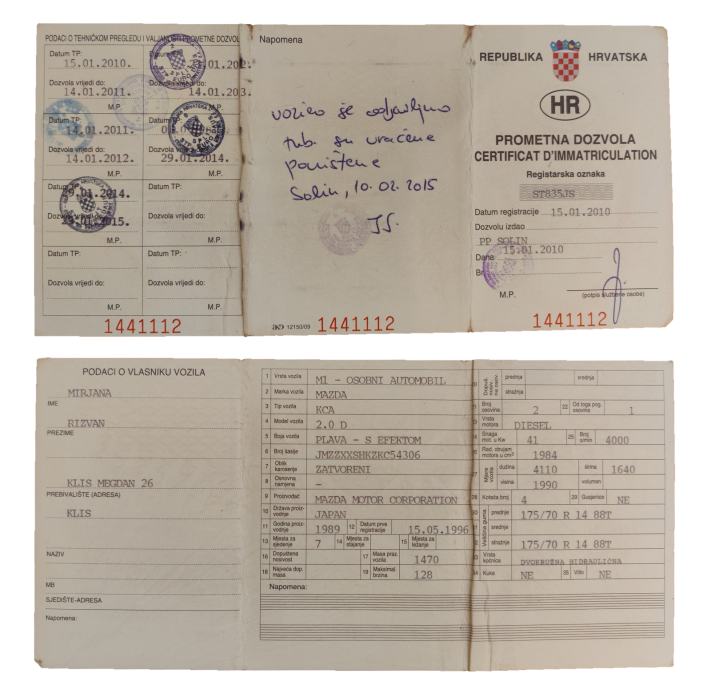 PODACI O TEHNIČKOM PREGLEDU I VALJANOSTI PROMETNE DOZVOLE
Datum TP: Datum TP:
15.01.2010.
Dozvola vrijedi do: Dozvola vrijedi do:
14.01.2011. 14.01.2013.
M.P. M.P.
Datum TP: Datum TP:
14.01.2011.
Dozvola vrijedi do: Dozvola vrijedi do:
14.01.2012. 29.01.2014.
M.P. M.P.
Datum TP: Datum TP:
29.01.2014.
Dozvola vrijedi do: Dozvola vrijedi do:
M.P. M.P.
Datum TP: Datum TP:
Dozvola vrijedi do: Dozvola vrijedi do:
M.P. M.P.
1441112
Napomena
vozilo je odjavljeno
tab. su vraćene
poništene
Solin, 10.02.2015
AKD 12150/09 1441112
REPUBLIKA HRVATSKA
HR
PROMETNA DOZVOLA
CERTIFICAT D'IMMATRICULATION
Registarska oznaka
ST835JS
Datum registracije 15.01.2010
Dozvolu izdao
PP SOLIN
Dana 15.01.2010
Br
M.P. (potpis službene osobe)
1441112
PODACI O VLASNIKU VOZILA
MIRJANA
IME
RIZVAN
PREZIME
KLIS MEGDAN 26
PREBIVALIŠTE (ADRESA)
KLIS
NAZIV
MB
SJEDIŠTE-ADRESA
Napomena:
1 Vrsta vozila M1 - OSOBNI AUTOMOBIL
2 Marka vozila MAZDA
3 Tip vozila KCA
4 Model vozila 2.0 D
5 Boja vozila PLAVA - S EFEKTOM
6 Broj šasije JMZZXXSHKZKC54306
7 Oblik karoserije ZATVORENI
8 Osnovna namjena -
9 Proizvođač MAZDA MOTOR CORPORATION
10 Država proizvodnje JAPAN
11 Godina proizvodnje 1989 12 Datum prve registracije 15.05.1996
13 Mjesta za sjedenje 7 14 Mjesta za stajanje 15 Mjesta za ležanje
16 Dopuštena nosivost 17 Masa praz. vozila 1470
18 Najveća dop. masa 19 Maksimal. brzina 128
Napomena:
prednja srednja
stražnja
Broj osovina 2 22 Od toga pog. osovina 1
Vrsta motora DIESEL
Snaga mot. u Kw 41 25 Broj o/min 4000
Rad. obujam motora u cm³ 1984
Mjere vozila dužina 4110 širina 1640
visina 1990 volumen
28 Kotača broj 4 29 Gusjenice NE
Veličina guma prednje 175/70 R 14 88T
srednje
stražnje 175/70 R 14 88T
Vrsta kočnice DVOKRUŽNA HIDRAULIČNA
34 Kuka NE 35 Vitlo NE